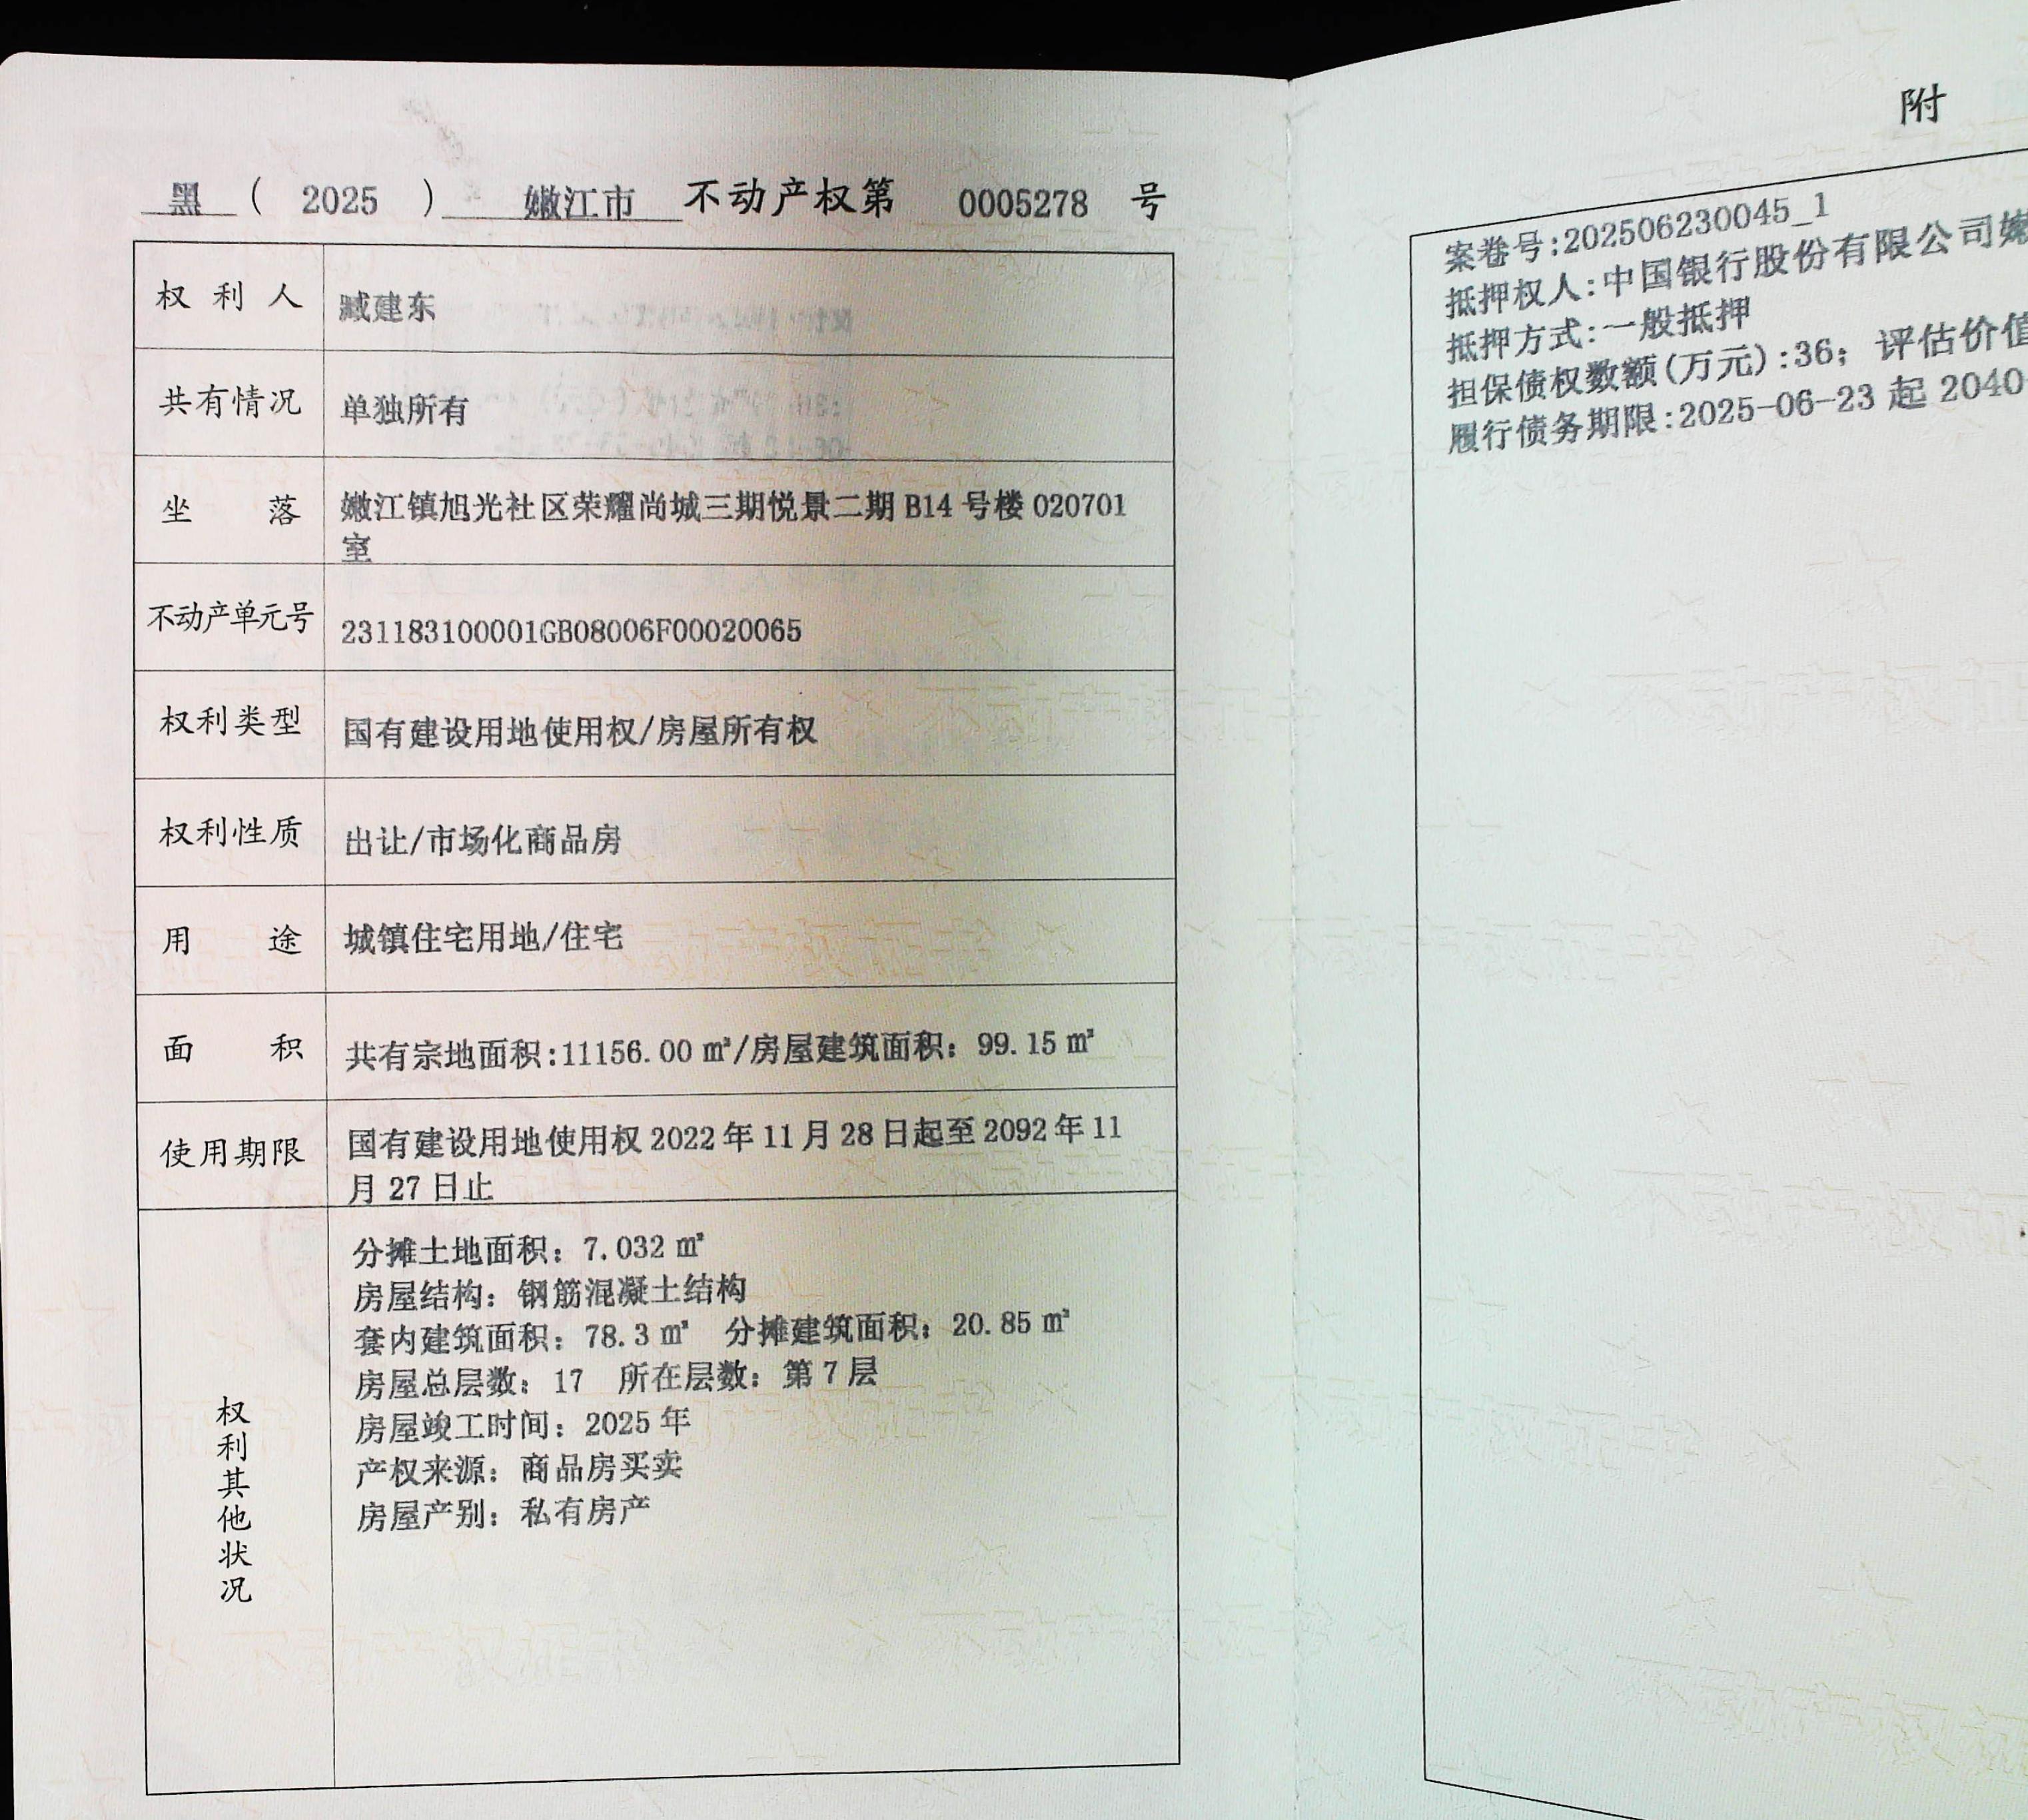 黑 ( 2025 ) 嫩江市 不动产权第 0005278 号
权利人 臧建东
共有情况 单独所有
坐落 嫩江镇旭光社区荣耀尚城三期悦景二期 B14 号楼 020701
室
不动产单元号 231183100001GB08006F00020065
权利类型 国有建设用地使用权/房屋所有权
权利性质 出让/市场化商品房
用途 城镇住宅用地/住宅
面积 共有宗地面积:11156.00 ㎡/房屋建筑面积：99.15 ㎡
使用期限 国有建设用地使用权 2022 年 11 月 28 日起至 2092 年 11
月 27 日止
权利其他状况
分摊土地面积：7.032 ㎡
房屋结构：钢筋混凝土结构
套内建筑面积：78.3 ㎡ 分摊建筑面积：20.85 ㎡
房屋总层数：17 所在层数：第 7 层
房屋竣工时间：2025 年
产权来源：商品房买卖
房屋产别：私有房产
附
案卷号:202506230045_1
抵押权人:中国银行股份有限公司嫩
抵押方式:一般抵押
担保债权数额(万元):36；评估价值
履行债务期限:2025-06-23 起 2040-